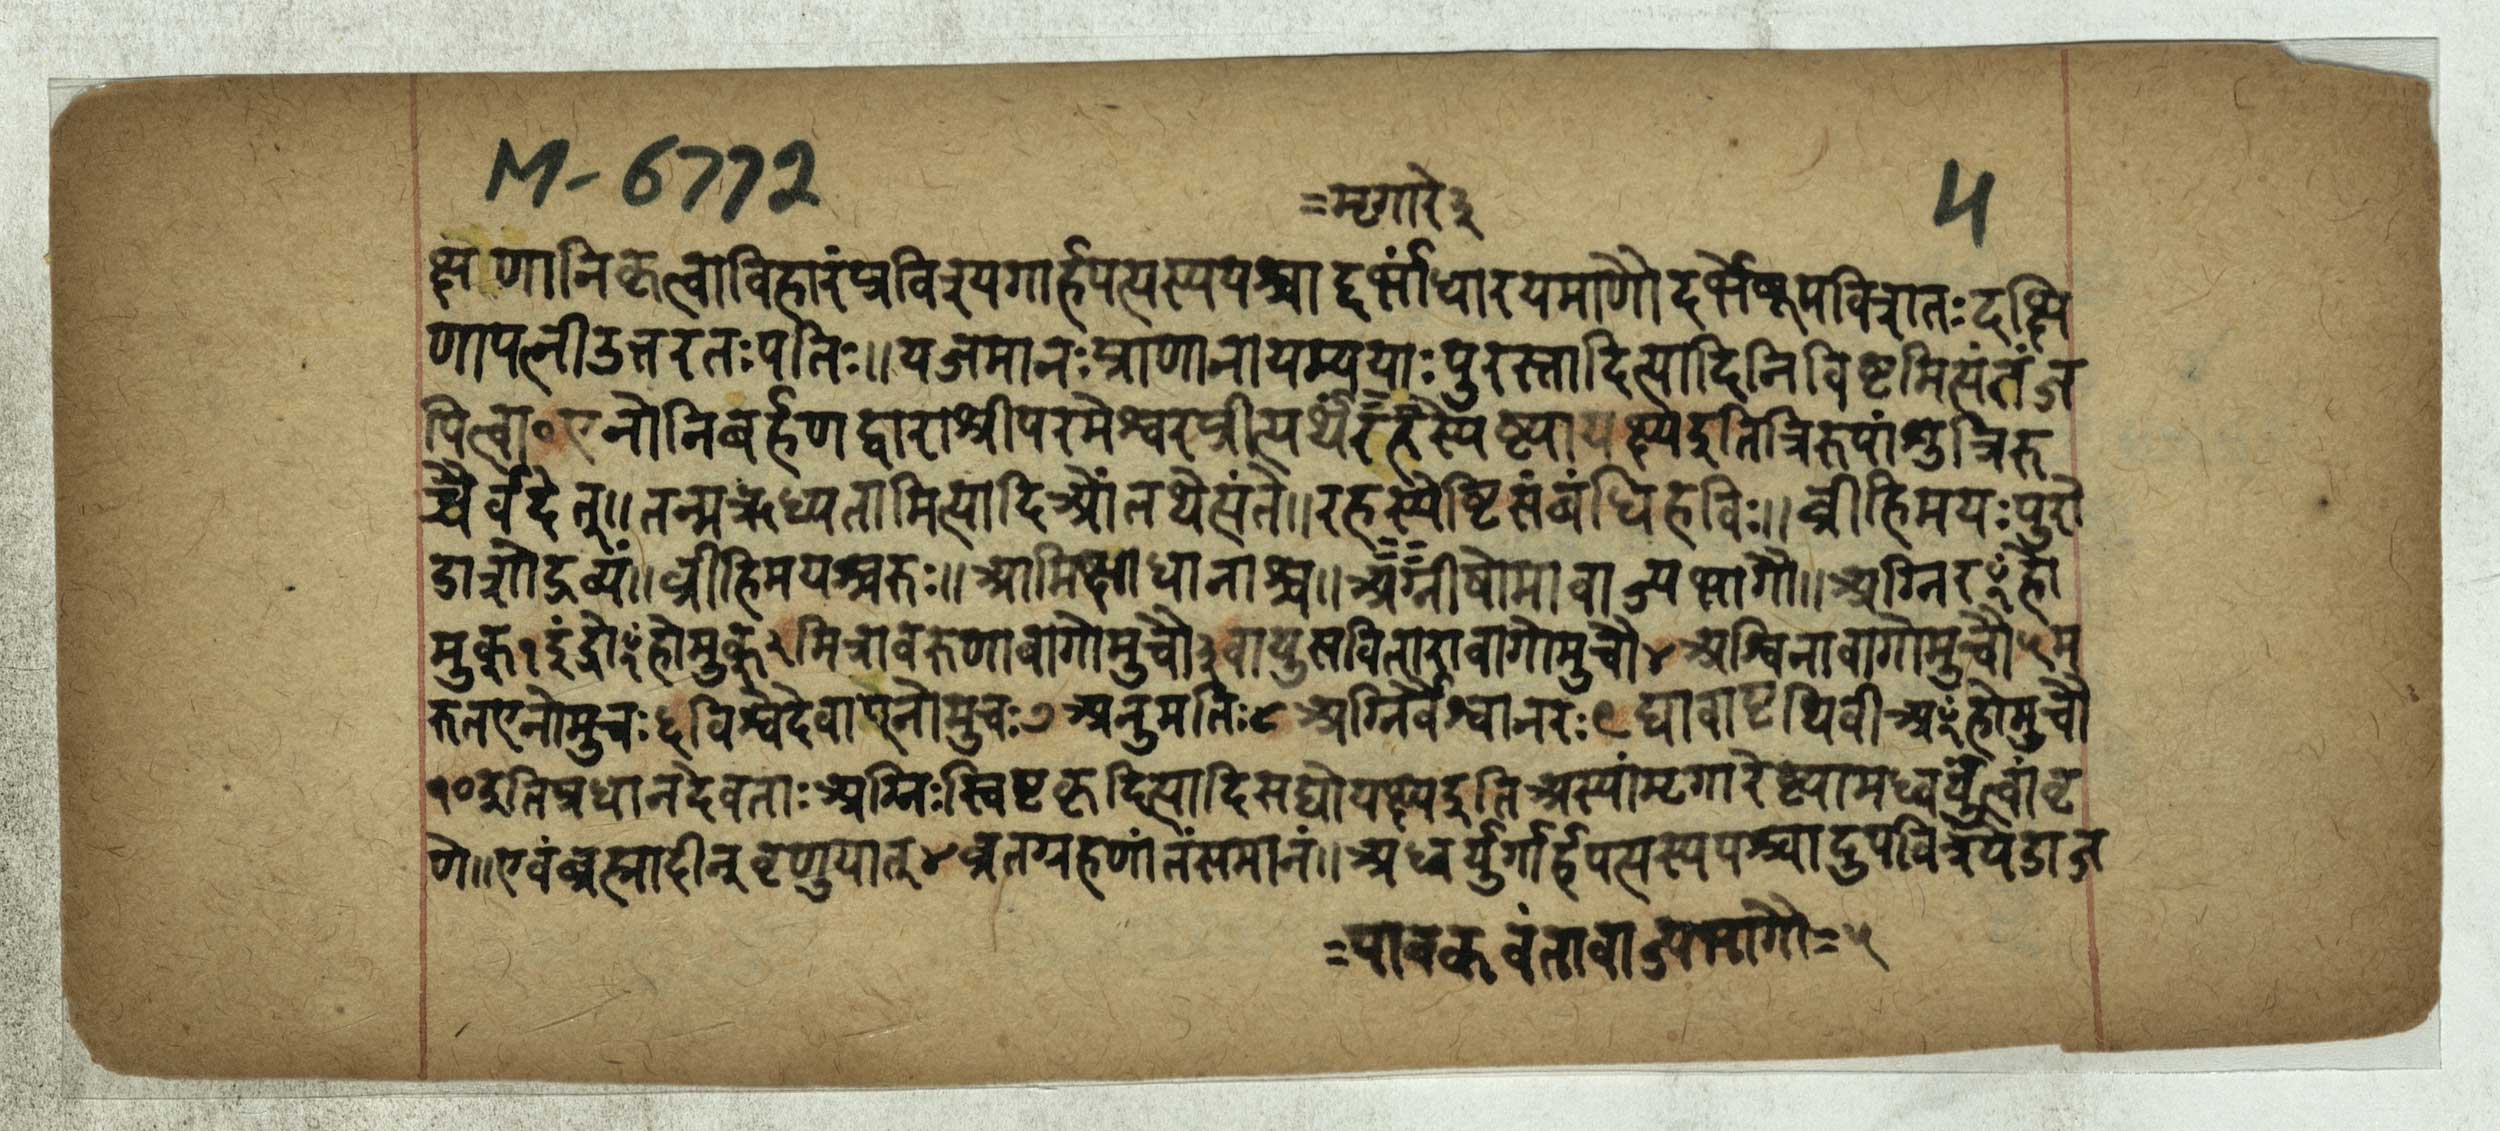 M-6772
=मृगारे ३
4
क्षणानिकृत्वाविहारंप्रविश्यगार्हपत्यस्यपश्चाद्दर्भांधारयमाणौदर्भेषूपविशतः दक्षि
णापत्नीउत्तरतःपतिः॥यजमानःप्राणानायम्ययाःपुरस्तादित्यादिनिविष्टमित्यंतंज
पित्वा॰एनोनिबर्हणद्वाराश्रीपरमेश्वरप्रीत्यर्थंरहस्येष्ट्यायक्ष्यइतित्रिरुपांशुत्रिरु
च्चैर्वदेत्॥तन्मऋध्यतामित्यादिओंतथेत्यंते॥रहस्येष्टिसंबंधिहविः॥व्रीहिमयःपुरो
डाशोद्रव्यं॥व्रीहिमयश्चरुः॥आमिक्षाधानाश्च॥अग्नीषोमावाज्यभागौ॥अग्निरꣳहो
मुक्१इंद्रोꣳहोमुक्२मित्रावरुणावागोमुचौ३वायुसवितारावागोमुचौ४अश्विनावागोमुचौ५म
रुतएनोमुचः६विश्वेदेवाएनोमुचः७अनुमतिः८अग्निर्वैश्वानरः९द्यावापृथिवीअꣳहोमुचौ
१०इतिप्रधानदेवताःअग्निःस्विष्टकृदित्यादिसद्योयक्ष्यइति अस्यांमृगारेष्ट्यामध्वर्युंत्वांवृ
णे॥एवंब्रह्मादीन् वृणुयात् ४व्रतग्रहणांतंसमानं॥अध्वर्युर्गार्हपत्यस्यपश्चादुपविश्येडाज
=पावकवंतावाज्यभागौ=५